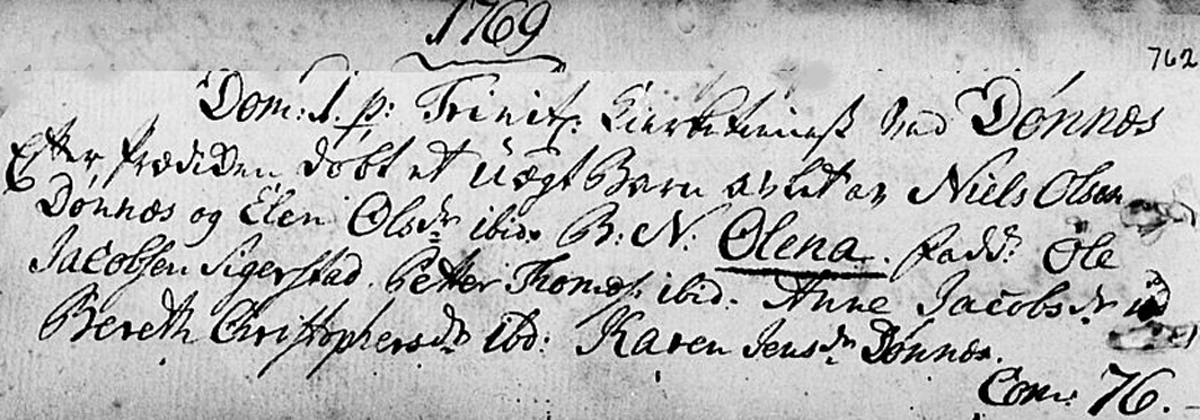 1769
762
Dom: 1. p: Trinit: Kierketieniest ved Dönnæs
Efter Prædiken döbt et uægt Barn avlet av Niels Olsen
Dönnæs og Elen Olsdr ibid. B: N: Olena. fadd: Ole
Jacobsen Sigerstad. Petter Thomæs: ibid: Anne Jacobsdr
Bereth Christophersdr ibd: Karen Jensdr Dönnæs.
Com: 76.